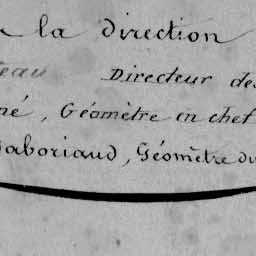 la direction
teau Directeur des
né, Géomètre en chef
Gaboriaud, Géomètre du